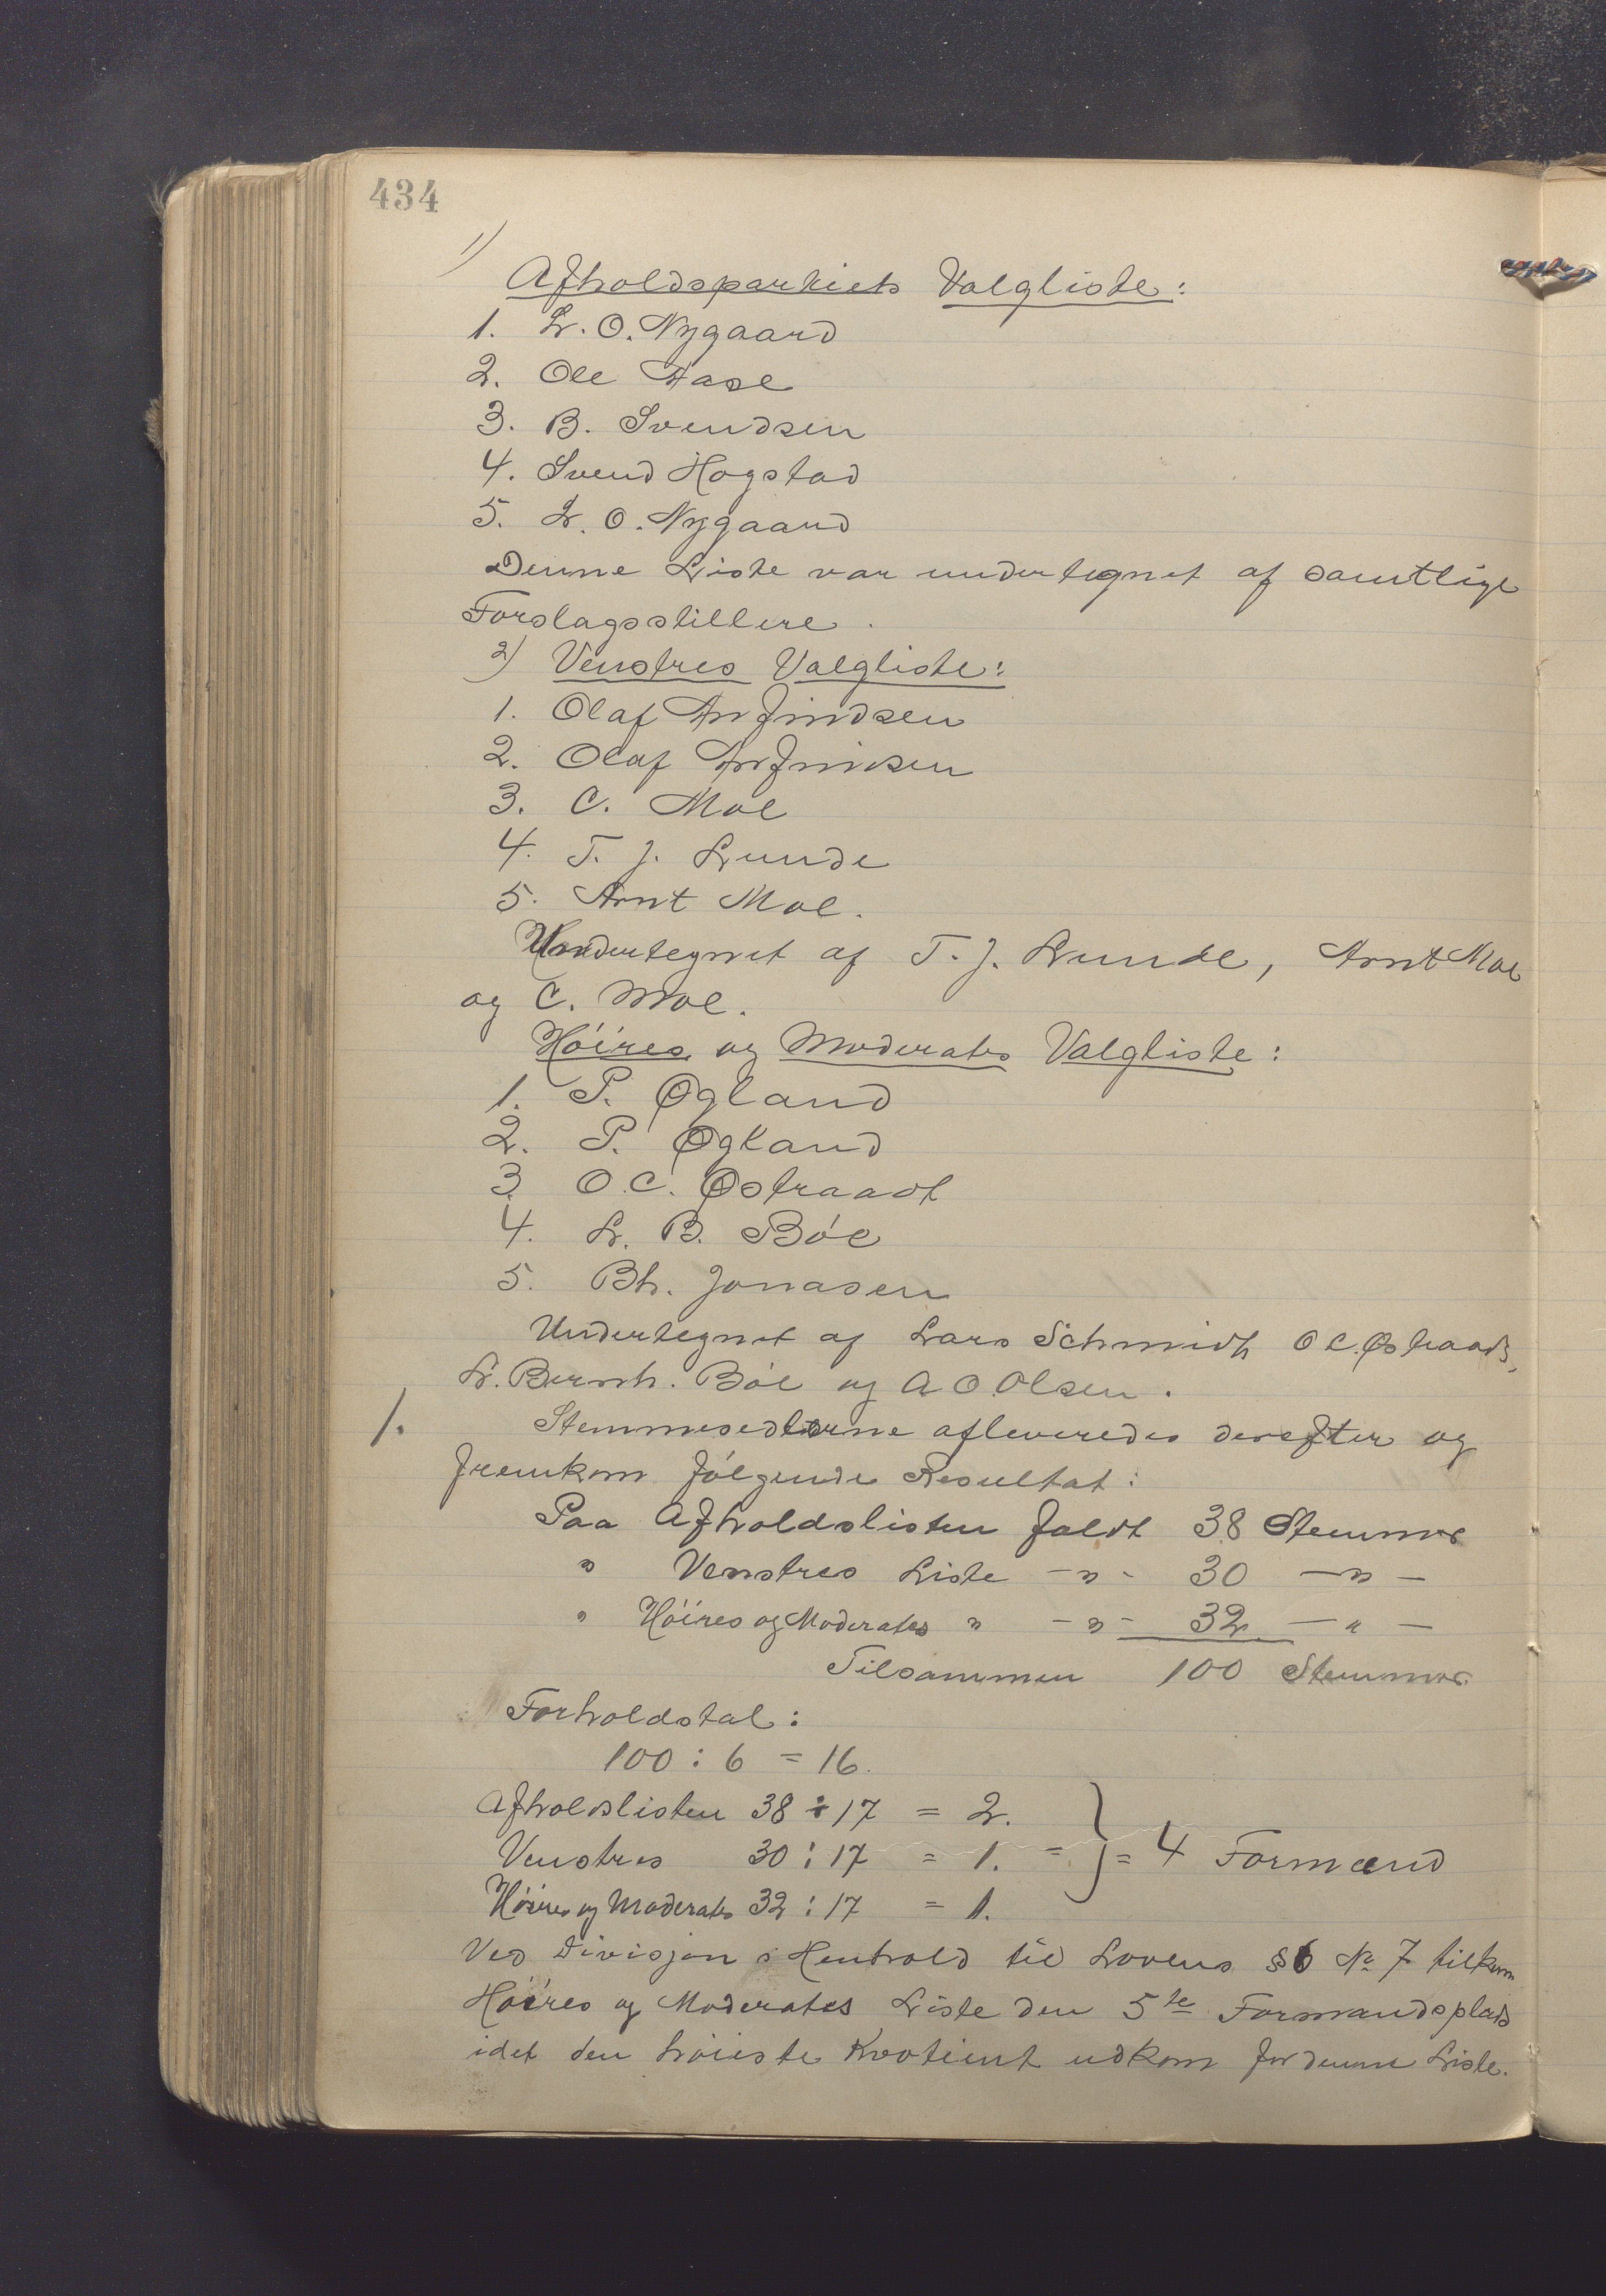 434
1)
Afholdspartiets Valgliste:
1. L. O. Nygaard
2. Ole Aase
3. B. Svendsen
4. Svend Hogstad
5. L. O. Nygaard
Denne Liste var undertegnet af samtlige
Forslagsstillere.
2) Venstres Valgliste:
1. Olaf Arfindsen
2. Olaf Arfindsen
3. C. Moe
4. T. J. Lunde
5. Arnt Moe.
Undertegnet af T. J. Lunde, Arnt Moe
og C. Moe.
Høires og Moderates Valgliste:
1. P. Øgland
2. P. Øgland
3. O. C. Østraadt
4. L. B. Bøe
5. Bh. Jonasen
Undertegnet af Lars Schmidt, O C. Østraadt,
L. Bernh. Bøe og A O. Olsen.
1. Stemmesedlerne afleveredes derefter og
fremkom følgende Resultat:
Paa Afholdslisten faldt 38 Stemmer
" Venstres Liste -"- 30 -"-
" Høires og Moderates " -"- 32 -"-
Tilsammen 100 Stemmer.
Forholdstal:
100 : 6 = 16.
Afholdslisten 38 : 17 = 2.
Venstres 30 : 17 = 1. = } = 4 Formænd
Høires og Moderats 32 : 17 = 1.
Ved Divisjon i Henhold til Lovens §6 No 7 tilkom
Høires og Moderates Liste den 5te Formandsplads
idet den høieste Kvotient udkom for denne Liste.